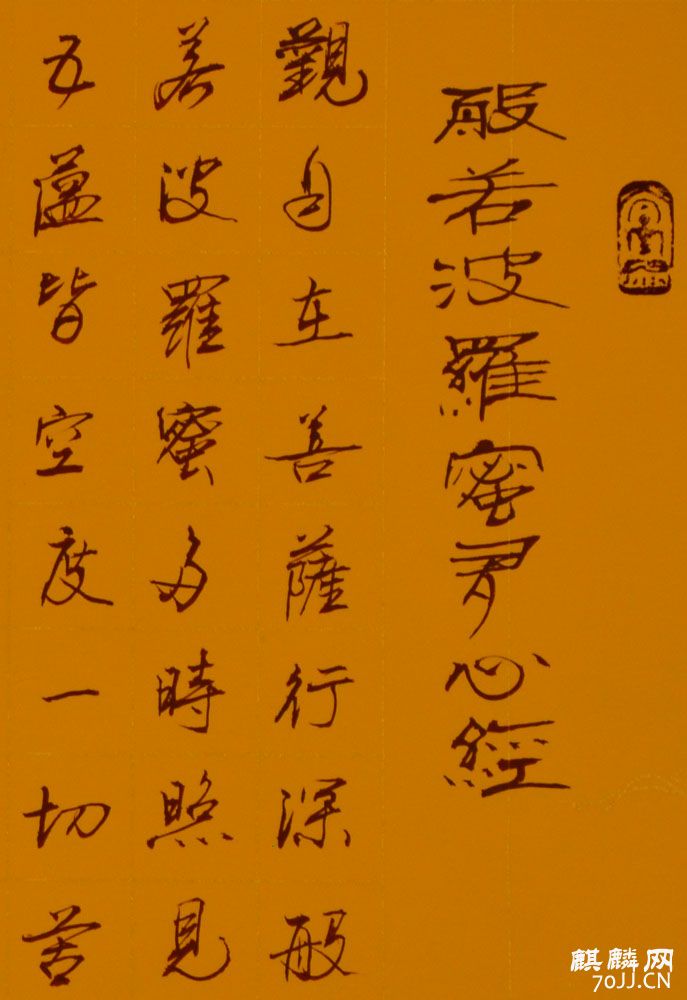 般若波羅蜜多心經
觀自在菩薩行深般
若波羅蜜多時照見
五蘊皆空度一切苦
麒麟网
70JJ.CN